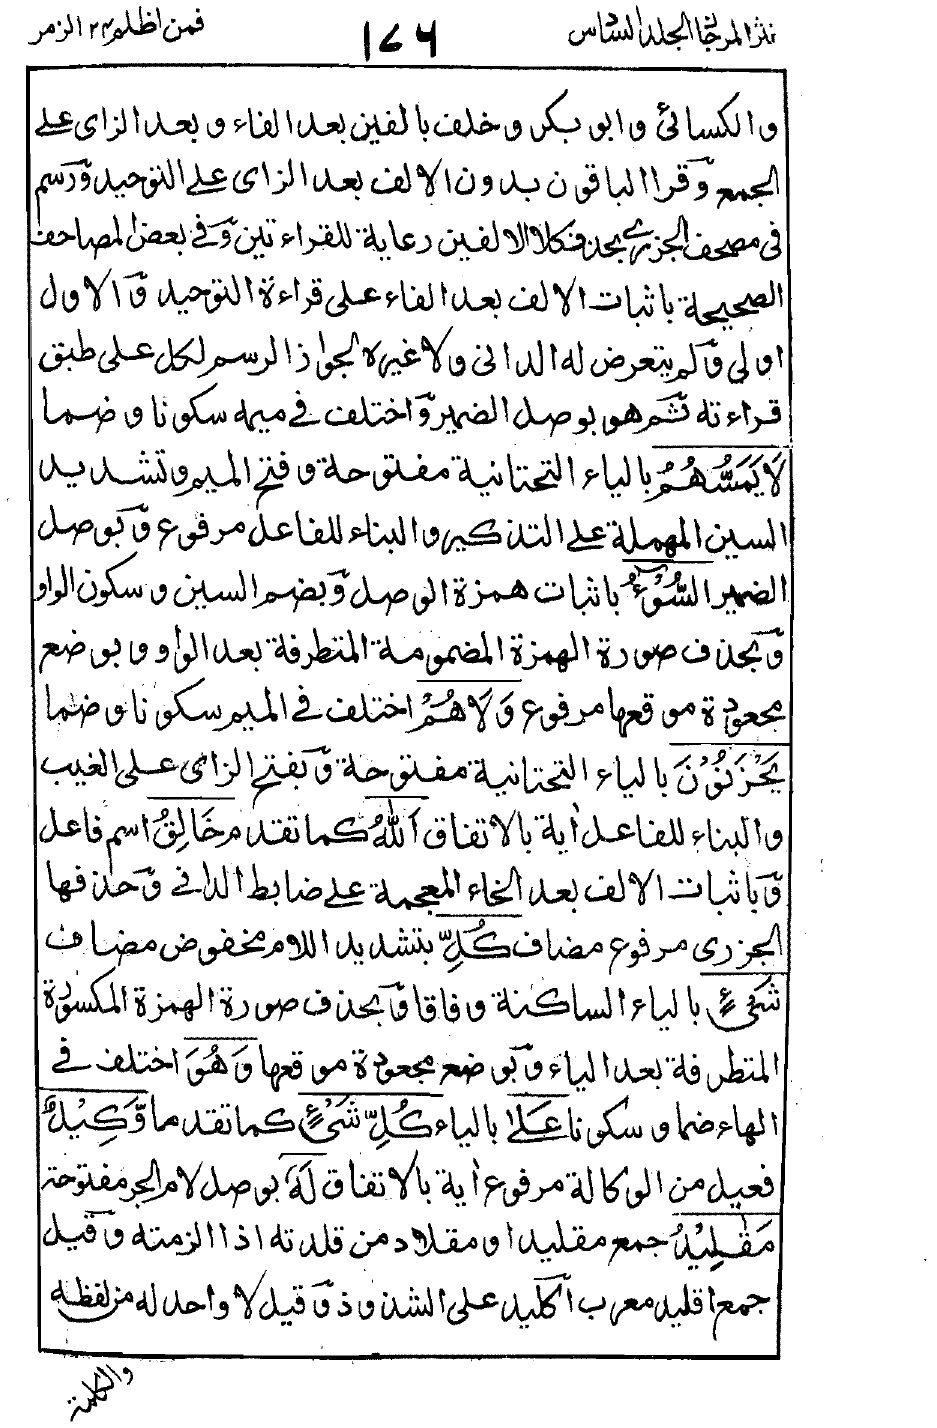 نثر المرجان الجلد السادس ١٧٦ فمن اظلم ٢٤ الزمر
والكسائي وابو بكر وخلف بالفين بعد الفاء وبعد الزاى على
الجمع وقرا الباقون بدون الالف بعد الزاى على التوحيد ورسم
فى مصحف الجزرى بحذف كلا الالفين رعاية للقراءتين وفى بعض المصاحف
الصحيحة باثبات الالف بعد الفاء على قراءة التوحيد والاول
اولى ولم يتعرض له الدانى ولا غيره لجواز الرسم لكل على طبق
قراءته ثم هو بوصل الضمير واختلف فى ميمه سكونا وضما
لَا يَمَسُّهُمُ بالياء التحتانية مفتوحة وفتح الميم وتشديد
السين المهملة على التذكير والبناء للفاعل مرفوع وبوصل
الضمير السُّوْٓءُ باثبات همزة الوصل وبضم السين وسكون الواو
وبحذف صورة الهمزة المضمومة المتطرفة بعد الواو وبوضع
مجعودة موقعها مرفوع وَلَا هُمْ اختلف فى الميم سكونا وضما
يَحْزَنُوْنَ بالياء التحتانية مفتوحة وبفتح الزاى على الغيب
والبناء للفاعل أية بالاتفاق اَللّٰهُ كما تقدم خَالِقُ اسم فاعل
وباثبات الالف بعد الخاء المعجمة على ضابط الدانى وحذفها
الجزرى مرفوع مضاف كُلِّ بتشديد اللام مخفوض مضاف
شَيْءٍ بالياء الساكنة وفاقا وبحذف صورة الهمزة المكسورة
المتطرفة بعد الياء وبوضع مجعودة موقعها وَهُوَ اختلف فى
الهاء ضما وسكونا عَلٰى بالياء كُلِّ شَيْءٍ كما تقدما وَّكِيْلٌ
فعيل من الوكالة مرفوع أية بالاتفاق لَهٗ بوصل لام الجر مفتوحة
مَقَلِيْدُ جمع مقليد او مقلاد من قلدته اذا الزمته وقيل
جمع اقليد معرب اكليد على الشذوذ وقيل لا واحد له من لفظه
والكلمة